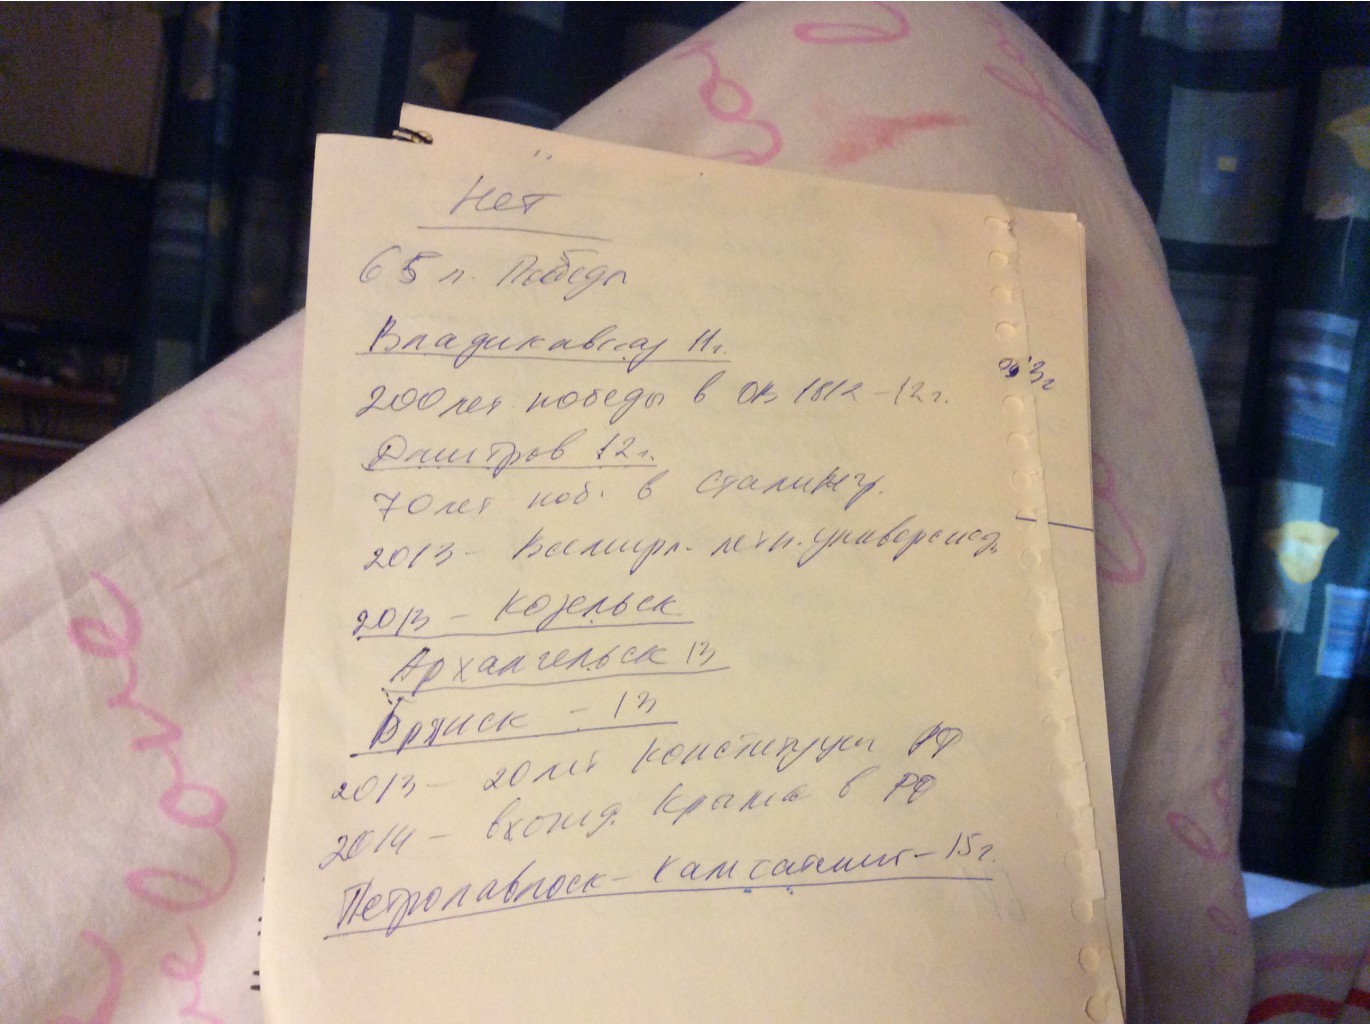 Нет
65 л. Победы
Владикавказ 11г.
200 лет победы в ОВ 1812 - 12г.
Дмитров 12г.
70 лет поб. в Сталингр.
2013 - Всемирн. летн. универсиад.
2013 - Козельск
Архангельск 13
Брянск - 13
2013 - 20 лет Конституции РФ
2014 - вхожд. Крыма в РФ
Петропавловск - Камчатский - 15г.
love
love